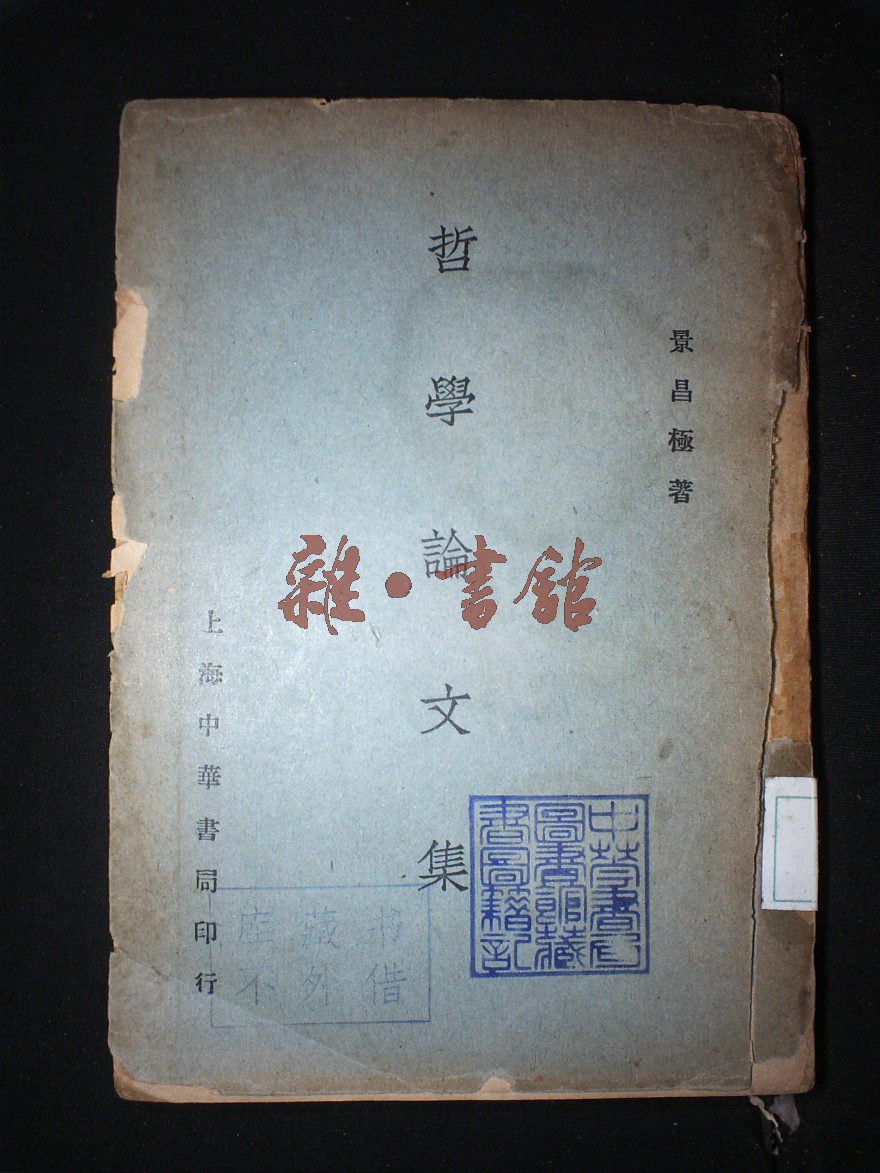 景昌極著
哲學論文集
上海中華書局印行
雜·書館
中華書局
圖書館藏
書圖籍記
库藏书
不外借